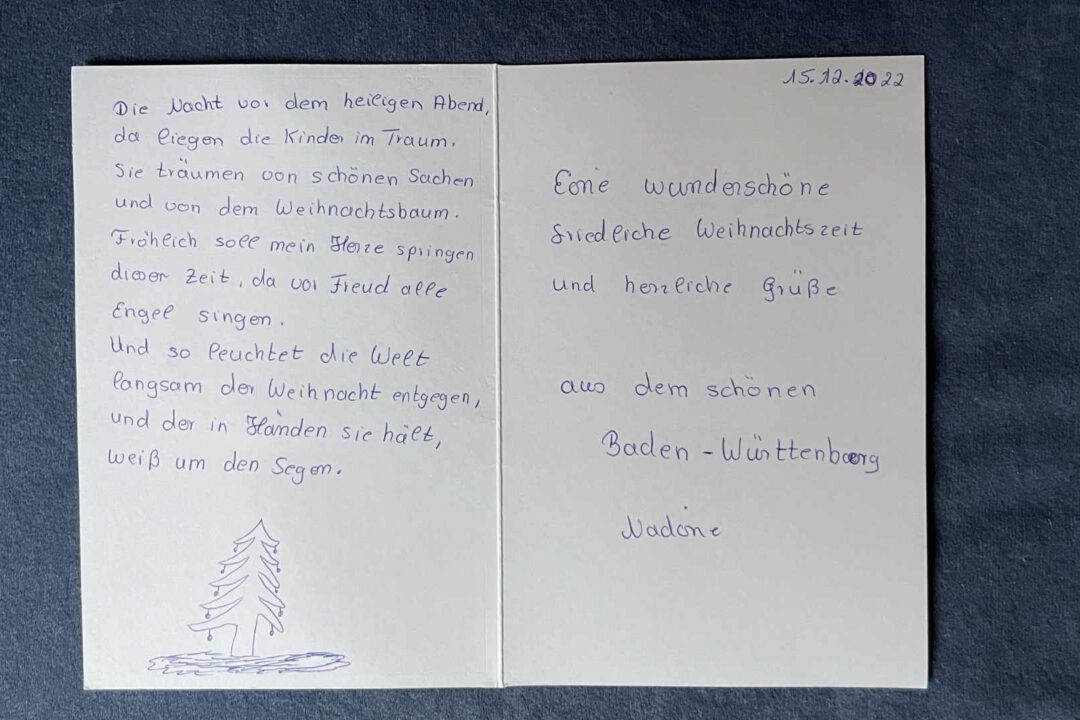 Die Nacht vor dem heiligen Abend,
da liegen die Kinder im Traum.
Sie träumen von schönen Sachen
und von dem Weihnachtsbaum.
Fröhlich soll mein Herze springen
dieser Zeit, da vor Freud alle
Engel singen.
Und so leuchtet die Welt
langsam der Weihnacht entgegen,
und der in Händen sie hält,
weiß um den Segen.
15.12.2022
Eine wunderschöne
friedliche Weihnachtszeit
und herzliche Grüße
aus dem schönen
Baden-Württenberg
Nadine